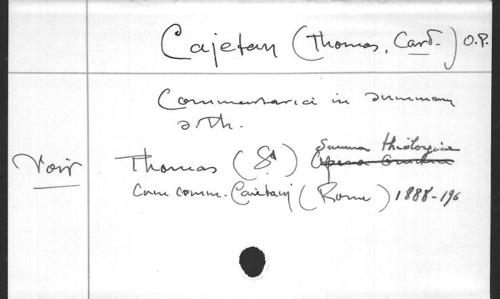 Cajetan (Thomas, Card.) O.P.
Commentaria in summam
s. th.
Voir Thomas (St) Summa theologica
cum comm. Caietani (Rome) 1888-196